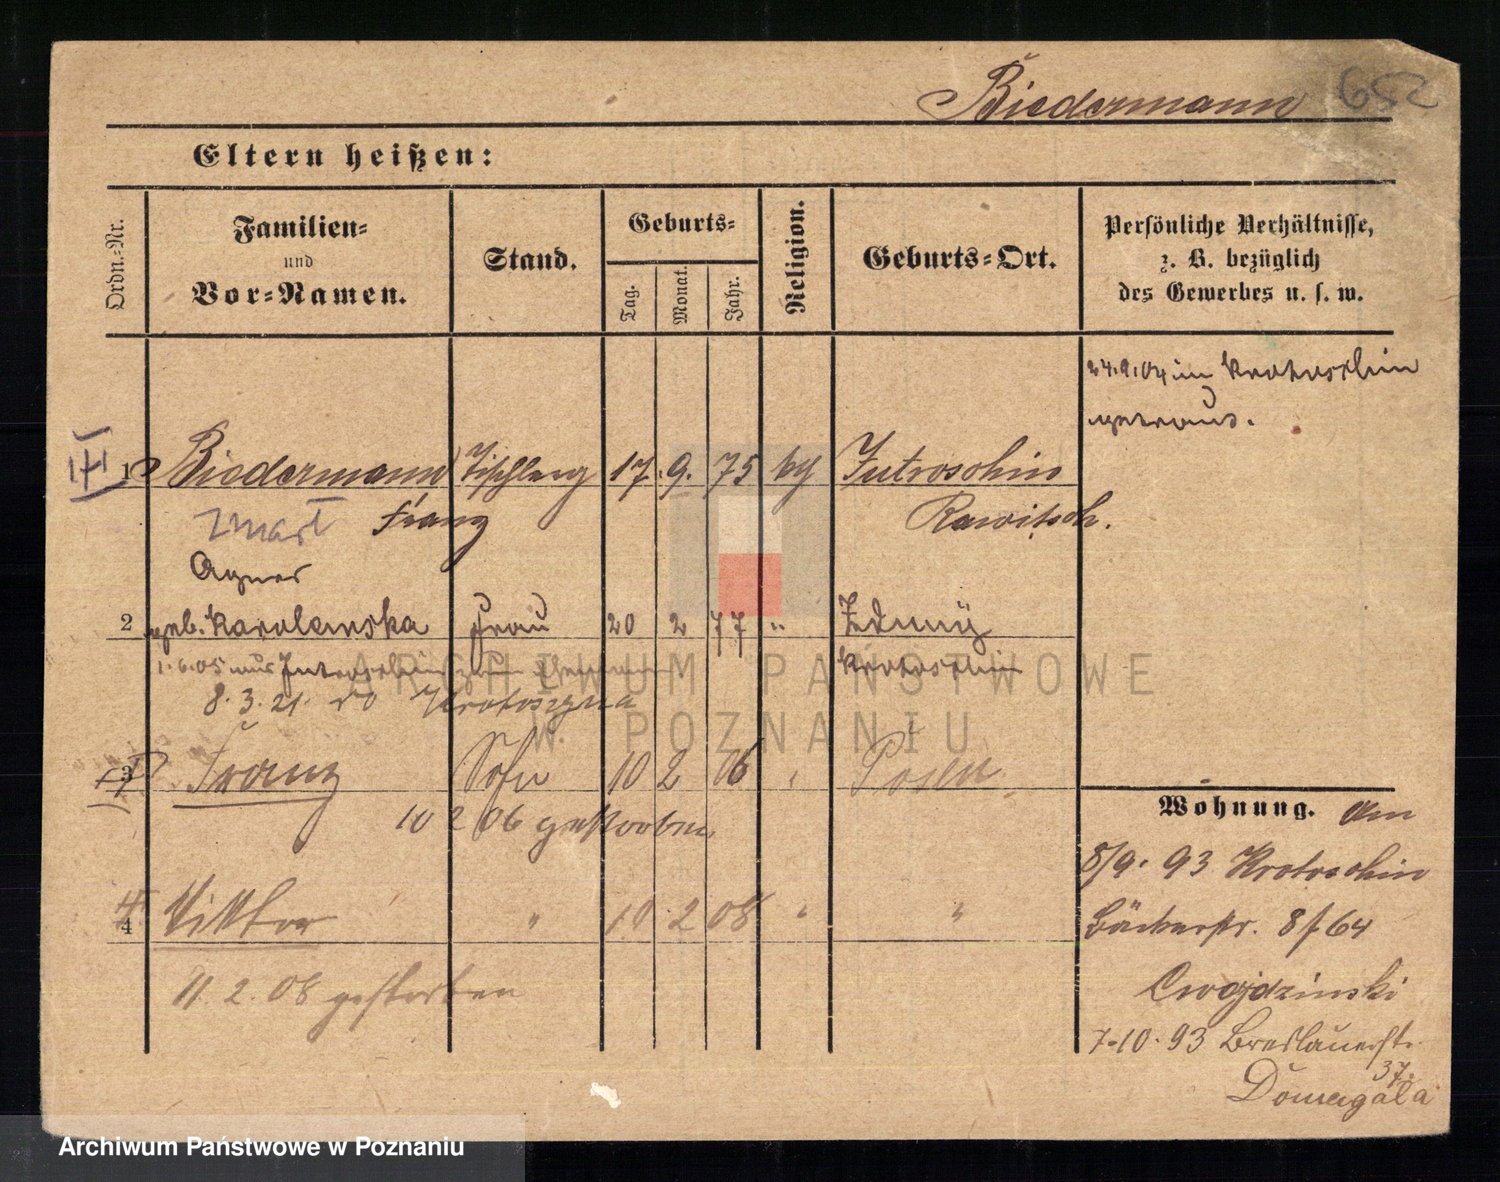 Biedermann 652
Eltern heißen:
Ordn.-Nr.
Familien-
und
Vor-Namen.
Stand.
Geburts-
Tag.
Monat.
Jahr.
Religion.
Geburts-Ort.
Persönliche Verhältnisse,
z. B. bezüglich
des Gewerbes u. s. w.
24.9.04 in Krotoschin
getraut.
1 Biedermann Tischlerg 17. 9. 75 kg Jutroschin
Franz Rawitsch.
Agnes
2 geb. Karolewska Frau 20 2 77 " Zduny
1.6.05 aus Jutroschin Krotoschin
8.3.21. do Krotoszyna
3 Franz Sohn 10 2 06 Posen
10 2 06 gestorben
4 Viktor " 10 2 08 " "
11.2.08 gestorben
Wohnung. am
8/9. 93 Krotoschin
Bäckerstr. 8 f 64
Cwojdzinski
7-10-93 Breslauerstr.
37.
Domagala
ARCHIWUM PAŃSTWOWE
W POZNANIU
Archiwum Państwowe w Poznaniu